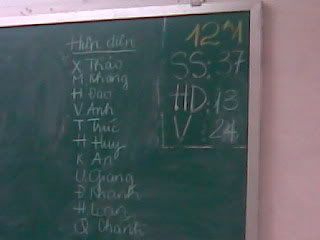 Hiện diện
X Thảo
M Khang
H Đào
V Anh
T Trúc
H Huy
K An
U Giang
Đ Khánh
H Loan
Q Chánh
12*1
SS: 37
HD: 13
V : 24